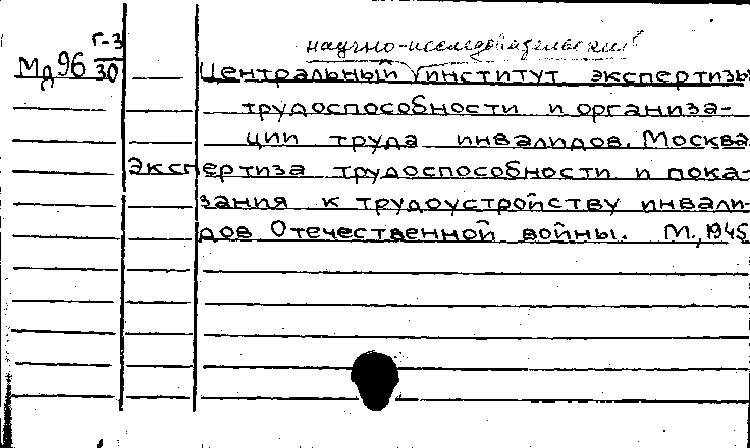 научно-исследовательский
Мд96 Г-3/30 Центральный институт экспертизы
трудоспособности и организа-
ции труда инвалидов. Москва
Экспертиза трудоспособности и пока-
зания к трудоустройству инвали-
дов Отечественной войны. М., 1945